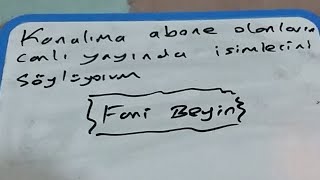 Kanalıma abone olanların
canlı yayında isimlerini
söylüyorum
Fani Beyin